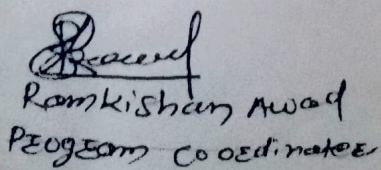 Ramkishan Awad
Program Coordinator